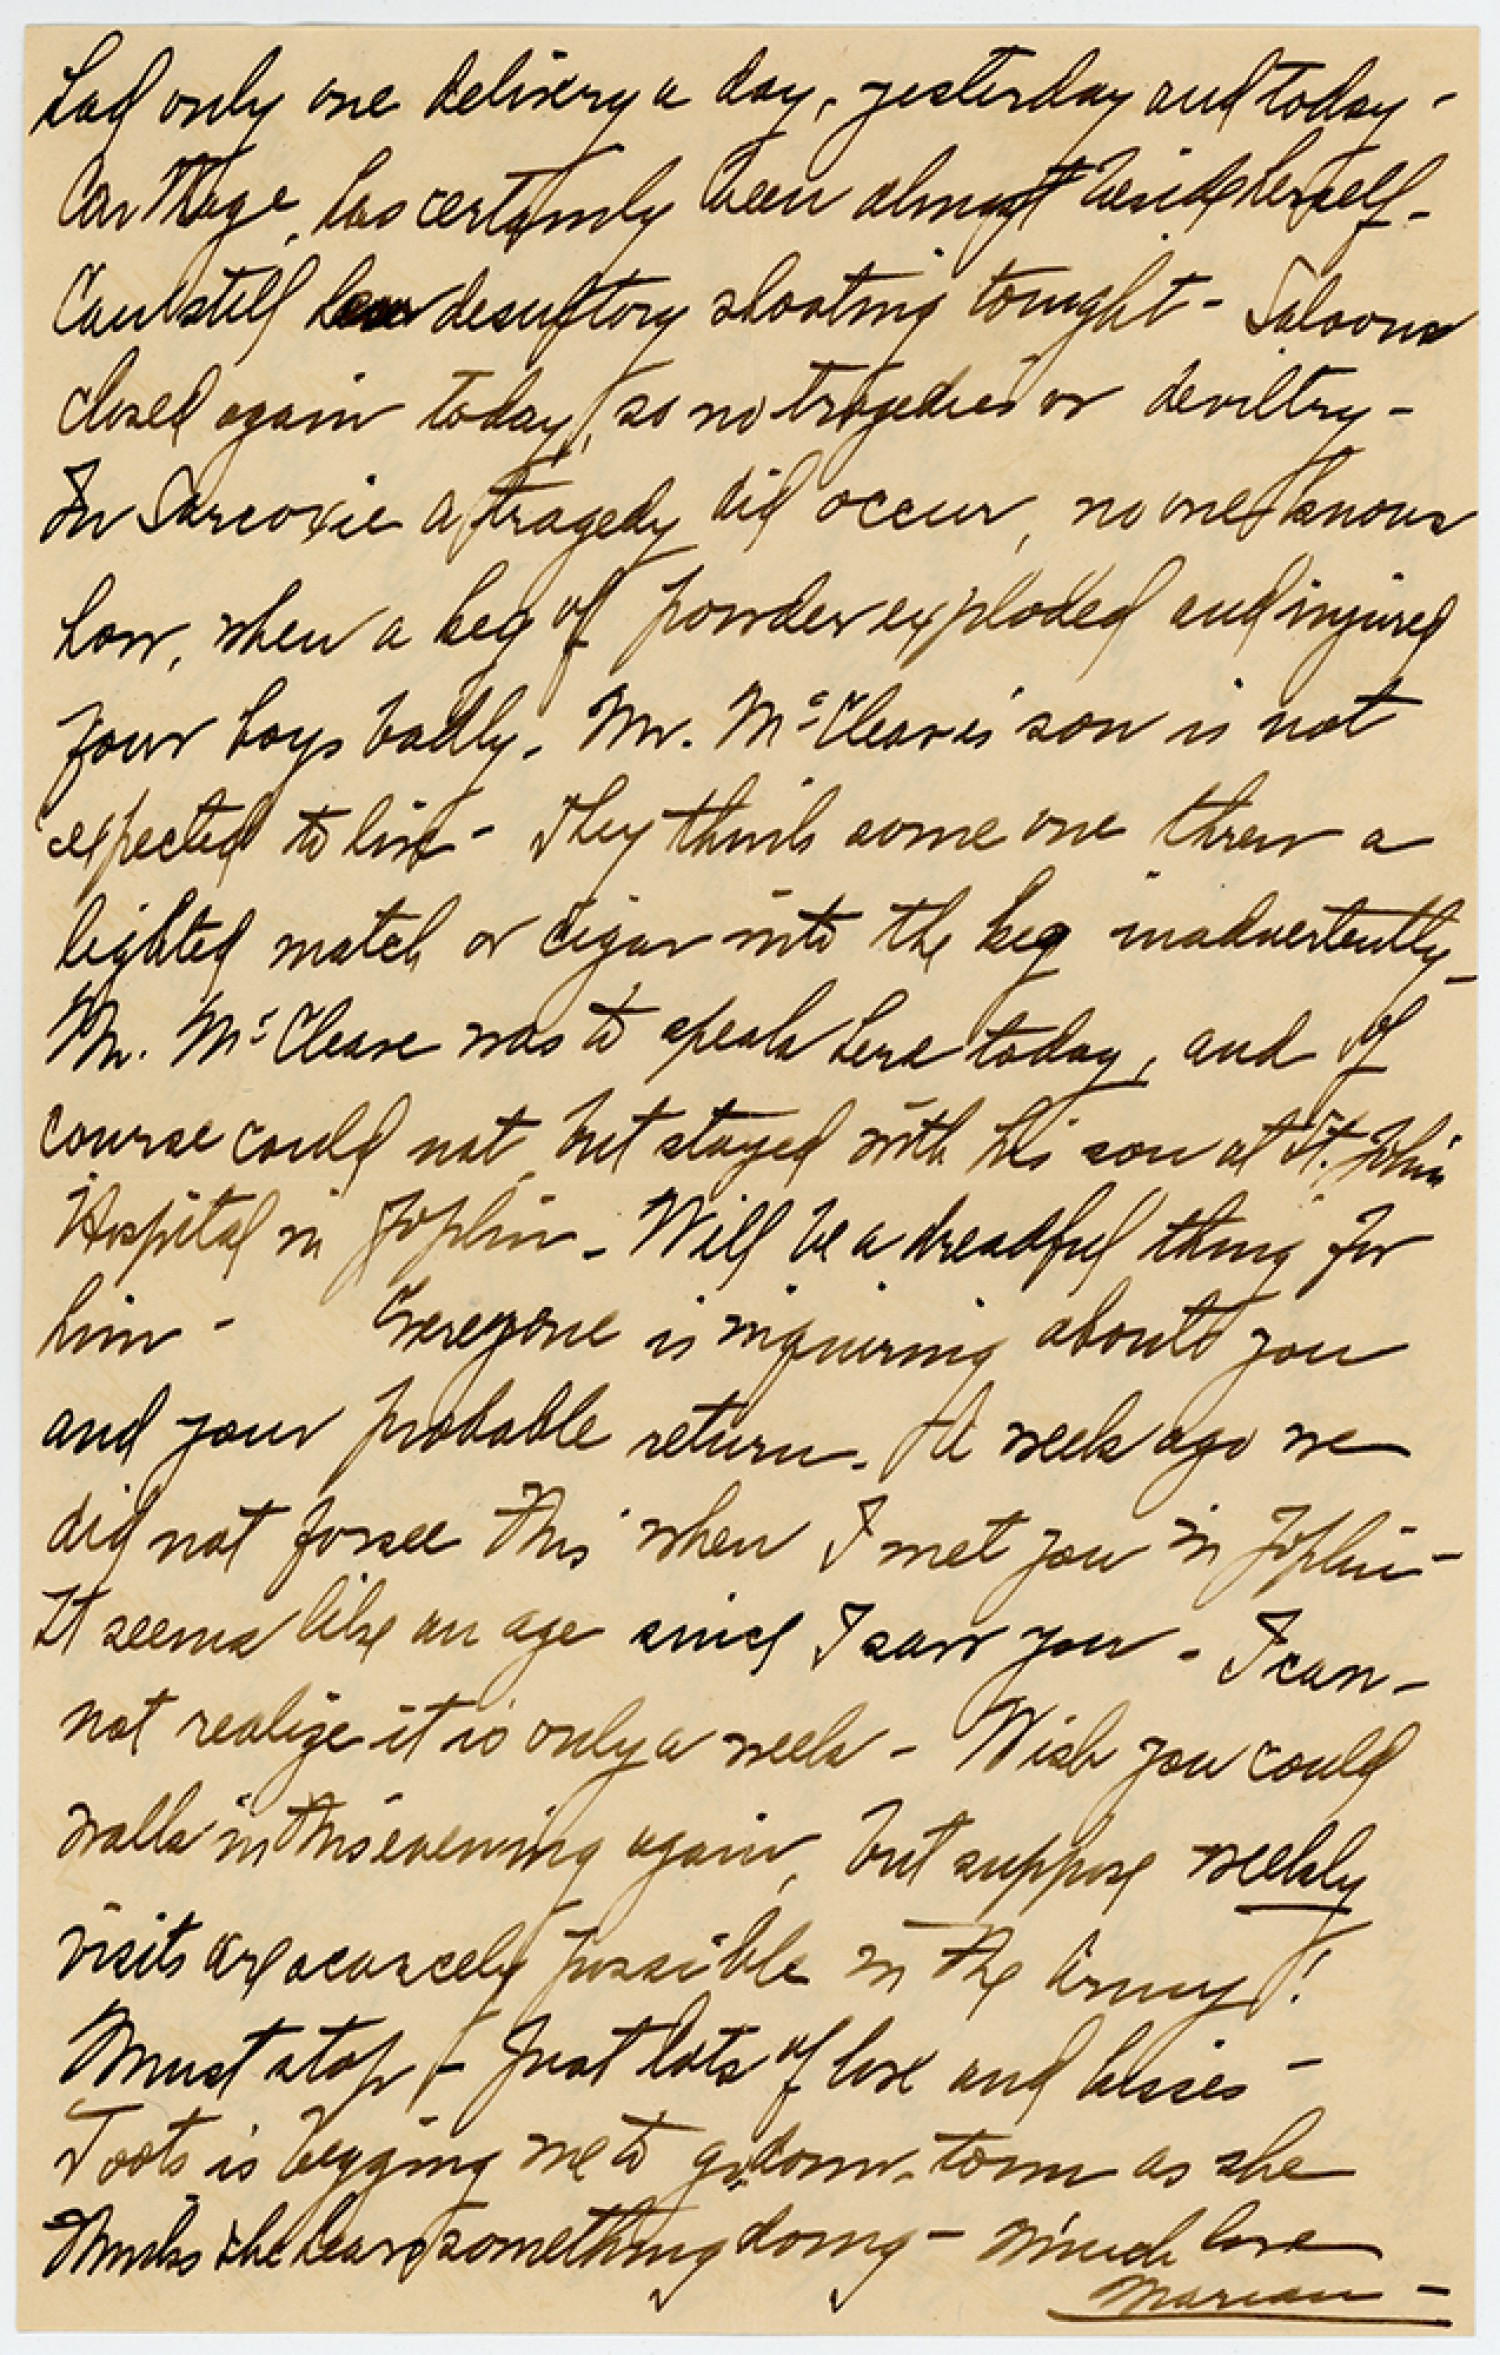 had only one delivery a day, yesterday and today -
Carthage, has certainly been almost beside herself -
Can still hear desultory shooting tonight - Saloons
closed again today, so no tragedies or deviltry -
In Sarcoxie a tragedy did occur, no one knows
how, when a keg of powder exploded and injured
four boys badly. Mr. McCleave's son is not
expected to live - They think some one threw a
lighted match or cigar into the keg inadvertently -
Mr. McCleave was to speak here today, and of
course could not, but stayed with his son at St. John's
Hospital in Joplin - Will be a dreadful thing for
him - Everyone is inquiring about you
and your probable return. A week ago we
did not forsee this when I met you in Joplin -
It seems like an age since I saw you - I can-
not realize it is only a week - Wish you could
walk in this evening again, but suppose weekly
visits are scarcely possible in the Army!
Must stop - Just lots of love and kisses -
Toots is begging me to go down-town as she
thinks she hears something doing - Much love
Marian -